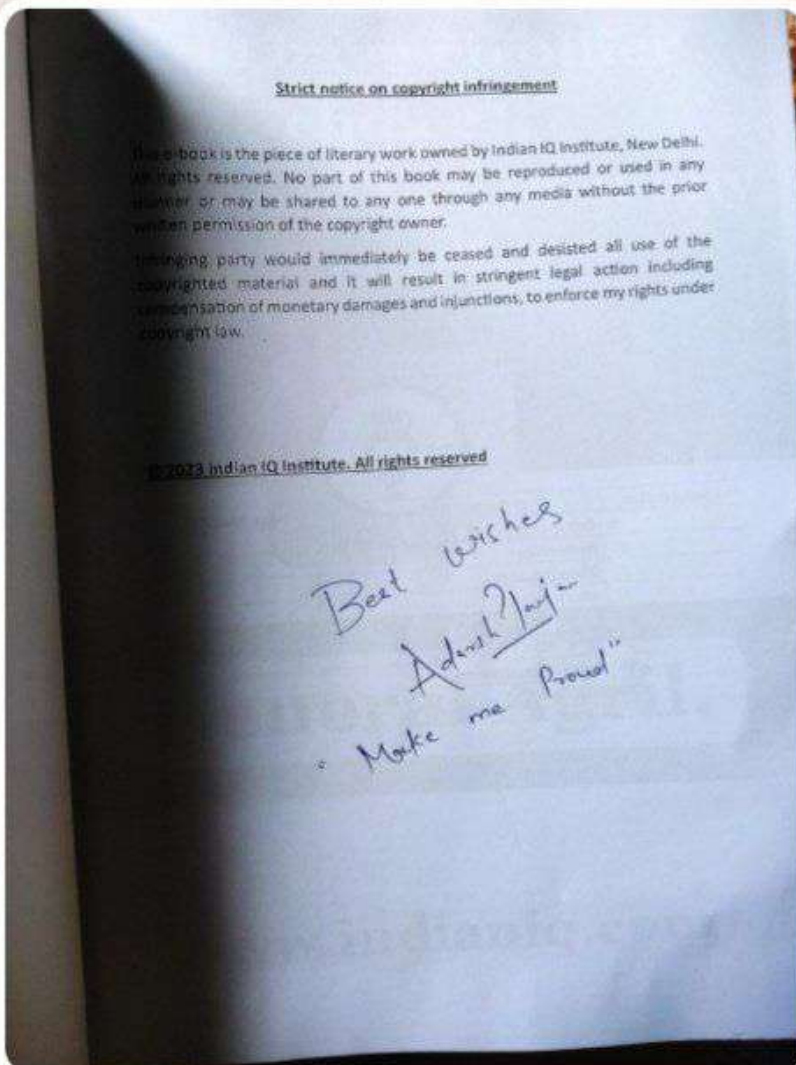 Strict notice on copyright infringement
This e-book is the piece of literary work owned by Indian IQ Institute, New Delhi.
All rights reserved. No part of this book may be reproduced or used in any
manner or may be shared to any one through any media without the prior
written permission of the copyright owner.
Infringing party would immediately be ceased and desisted all use of the
copyrighted material and it will result in stringent legal action including
compensation of monetary damages and injunctions, to enforce my rights under
copyright law.
© 2023 Indian IQ Institute. All rights reserved
Best wishes
Adarsh
"Make me Proud"